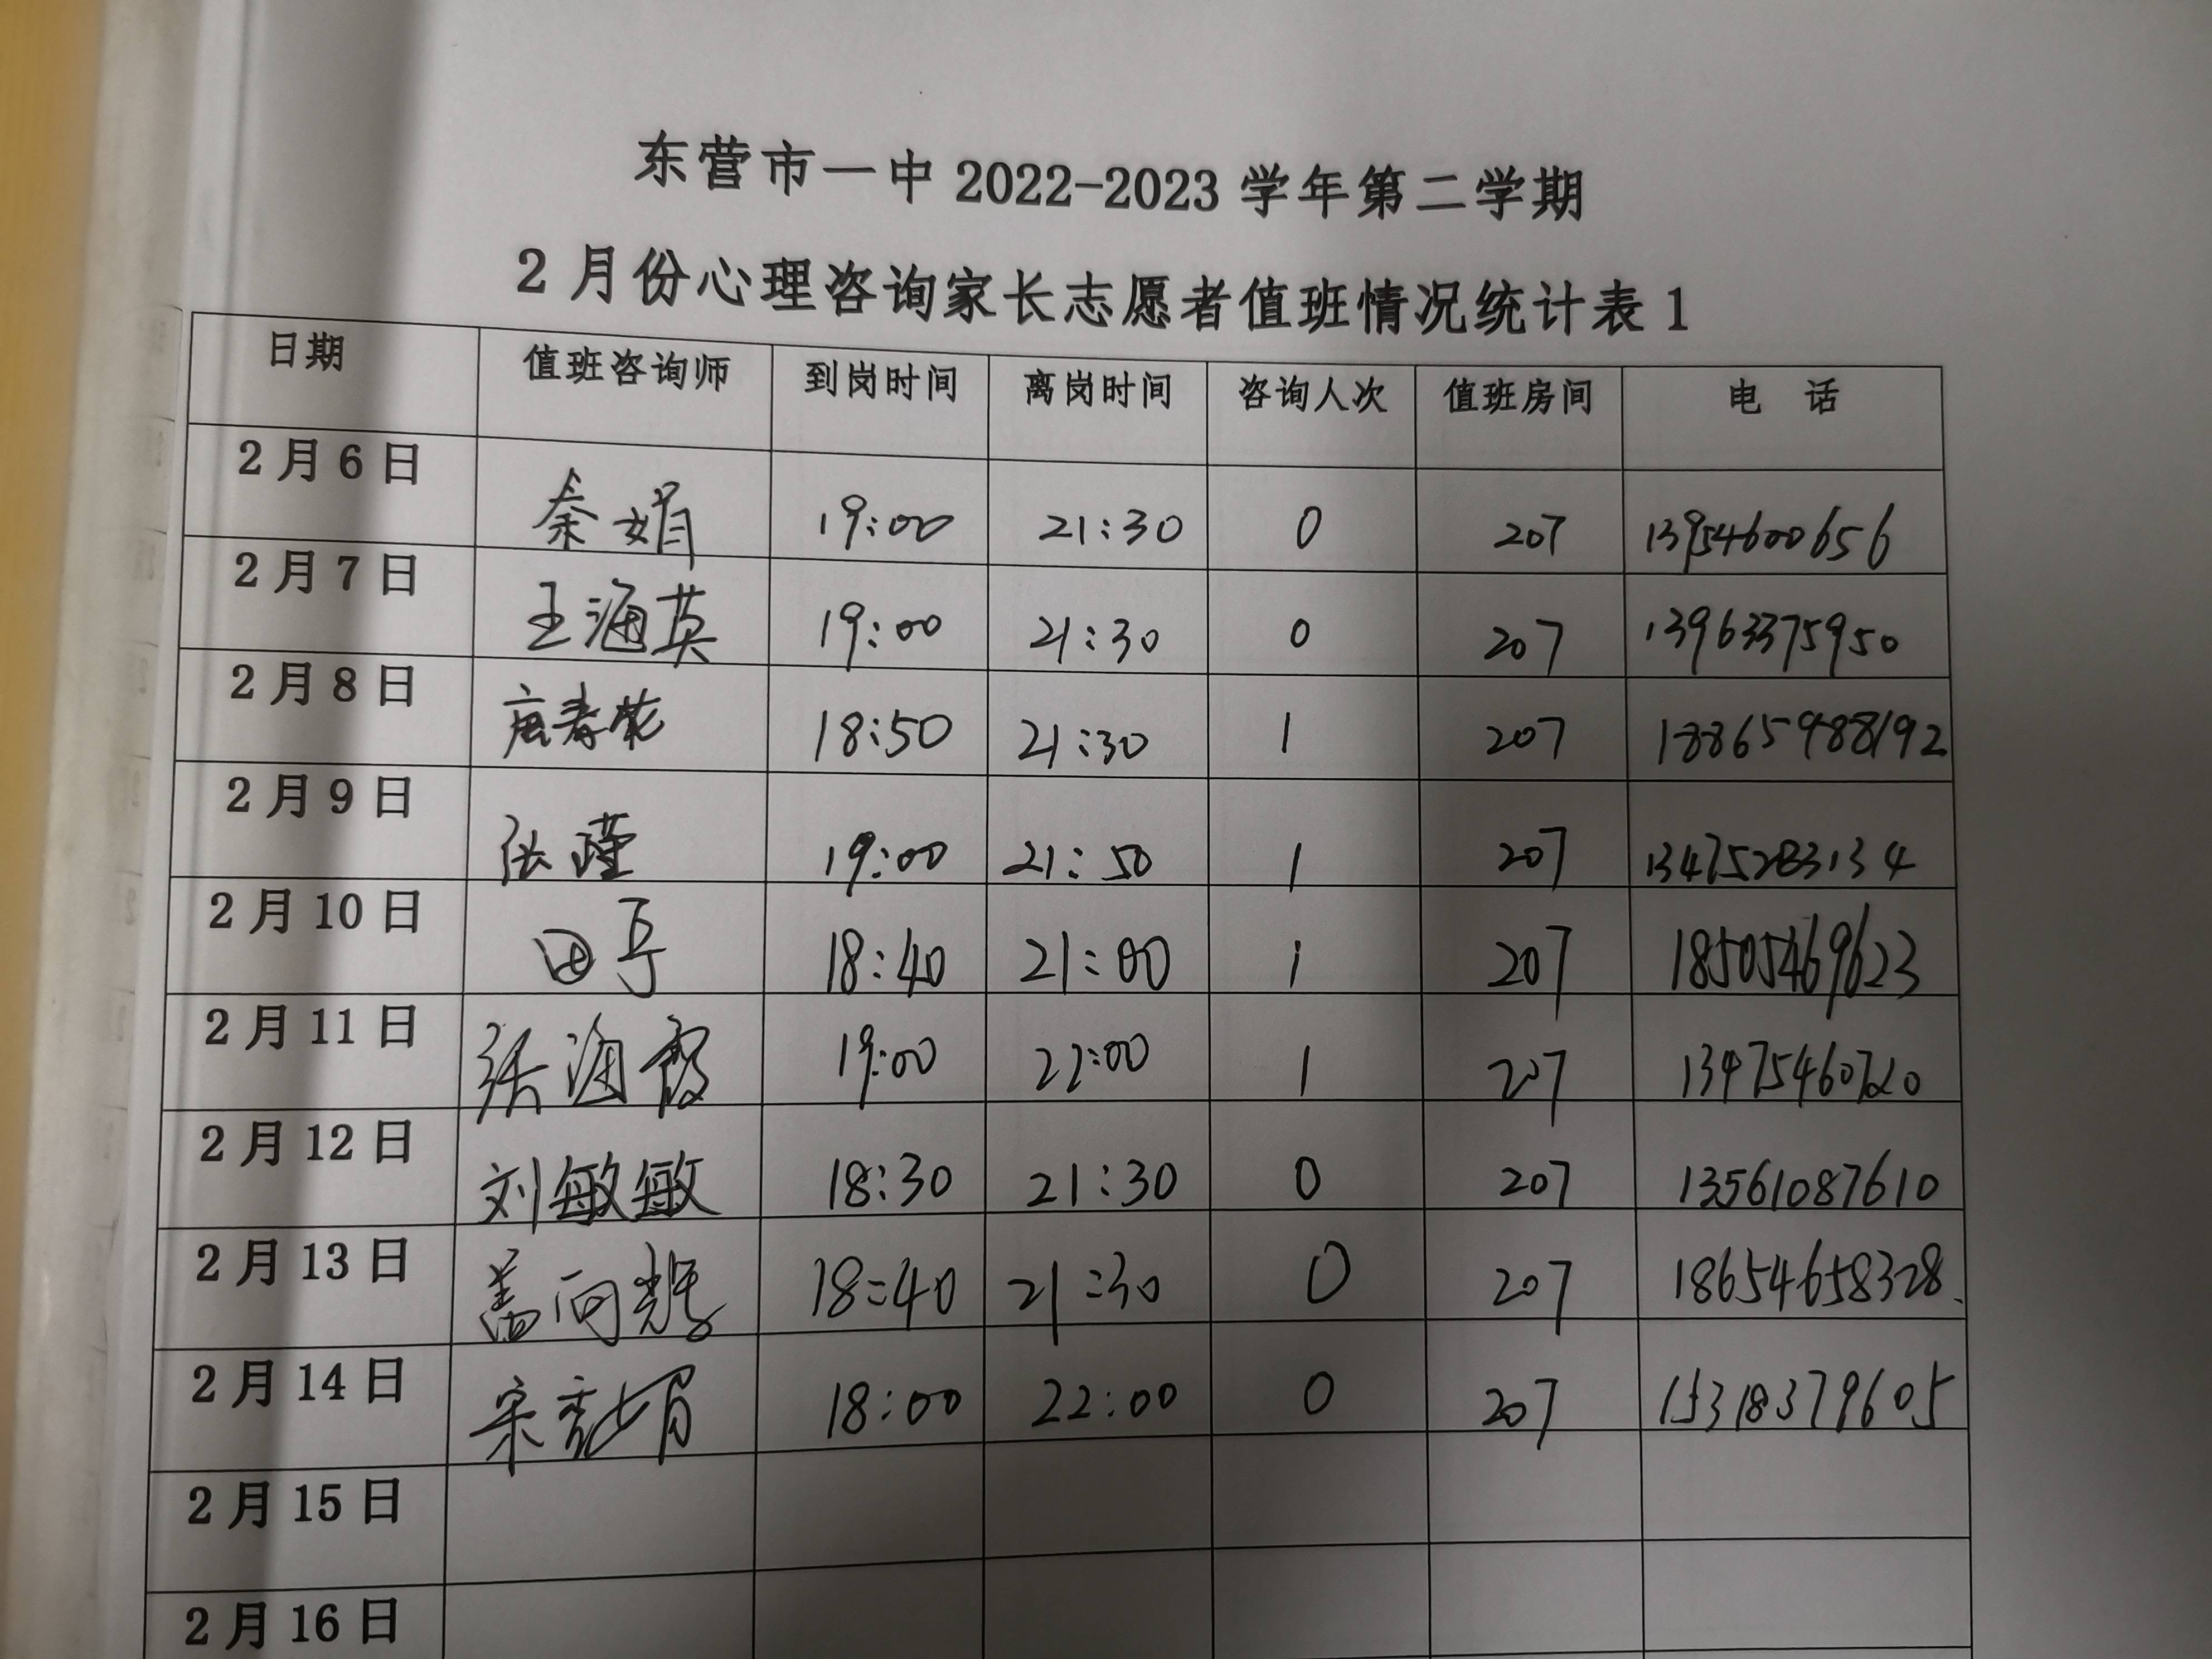 东营市一中 2022-2023 学年第二学期
2 月份心理咨询家长志愿者值班情况统计表 1
日期 值班咨询师 到岗时间 离岗时间 咨询人次 值班房间 电 话
2 月 6 日 秦娟 19:00 21:30 0 207 13954600656
2 月 7 日 王海英 19:00 21:30 0 207 13963375950
2 月 8 日 唐春花 18:50 21:30 1 207 18865988192
2 月 9 日 张瑾 19:00 21:50 1 207 13475283134
2 月 10 日 田 18:40 21:00 1 207 18505469623
2 月 11 日 张海霞 19:00 22:00 1 207 13475460720
2 月 12 日 刘敏敏 18:30 21:30 0 207 13561087610
2 月 13 日 盖向辉 18:40 21:30 0 207 18654658328
2 月 14 日 宋秀娟 18:00 22:00 0 207 15318379605
2 月 15 日
2 月 16 日